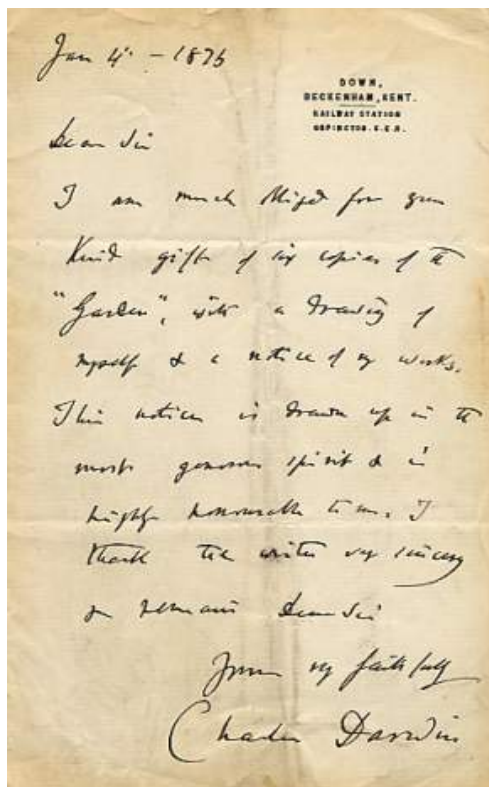 Jan 4' - 1875
DOWN,
BECKENHAM, KENT.
RAILWAY STATION
ORPINGTON. S.E.R.
Dear Sir
I am much obliged for your
kind gift of six copies of the
"Garden", with a drawing of
myself & a notice of my works.
This notice is drawn up in the
most generous spirit & in
highly honourable terms. I
thank the writer very sincerely
& remain Dear Sir
Yours very faithfully
Charles Darwin